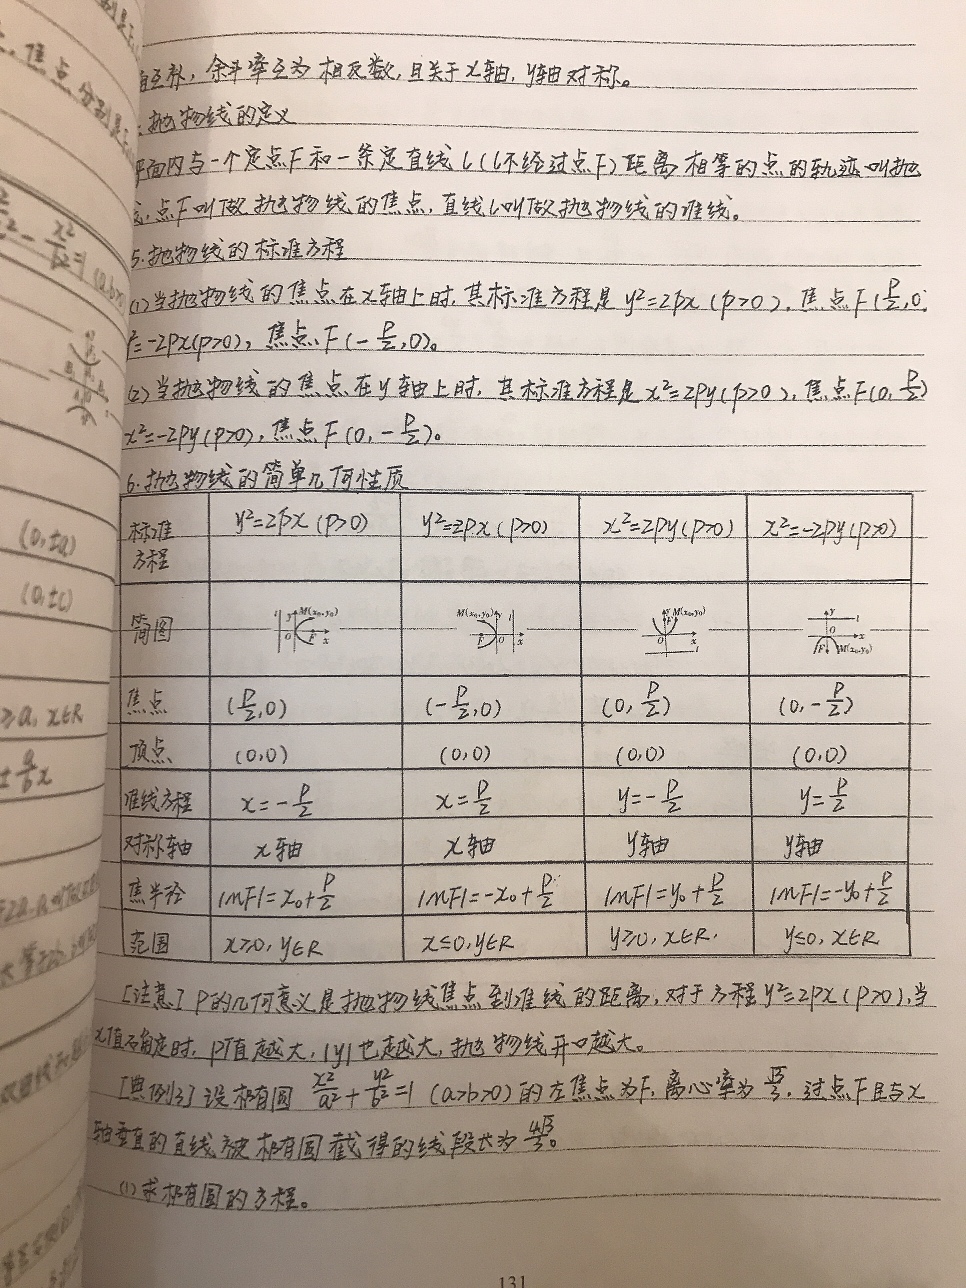 角互补，余斗率互为相反数，且关于x轴，y轴对称。
抛物线的定义
平面内与一个定点F和一条定直线l(l不经过点F)距离相等的点的轨迹叫抛
点F叫做抛物线的焦点，直线l叫做抛物线的准线。
5.抛物线的标准方程
(1)当抛物线的焦点在x轴上时，其标准方程是y²=2px(p>0)，焦点F(p/2,0
=-2px(p>0)，焦点F(-p/2,0)。
(2)当抛物线的焦点在y轴上时，其标准方程是x²=2py(p>0)，焦点F(0,p/2)
x²=-2py(p>0)，焦点F(0,-p/2)。
6.抛物线的简单几何性质
标准方程 y²=2px(p>0) y²=2px(p>0) x²=2py(p>0) x²=-2py(p>0)
简图 l y M(x₀,y₀) O F x M(x₀,y₀) y l F O x y M(x₀,y₀) F O x l y l O x F M(x₀,y₀)
焦点 (p/2,0) (-p/2,0) (0,p/2) (0,-p/2)
顶点 (0,0) (0,0) (0,0) (0,0)
准线方程 x=-p/2 x=p/2 y=-p/2 y=p/2
对称轴 x轴 x轴 y轴 y轴
焦半径 |MF|=x₀+p/2 |MF|=-x₀+p/2 |MF|=y₀+p/2 |MF|=-y₀+p/2
范围 x≥0,y∈R x≤0,y∈R y≥0,x∈R. y≤0,x∈R
[注意]P的几何意义是抛物线焦点到准线的距离，对于方程y²=2px(p>0)，当
x值确定时，P值越大，|y|也越大，抛物线开口越大。
[典例3]设椭圆x²/a²+y²/b²=1(a>b>0)的左焦点为F，离心率为√3/3，过点F且与x
轴垂直的直线被椭圆截得的线段长为4√3/3。
(1)求椭圆的方程。
131
(0,±a)
(0,±c)
≥a,x∈R